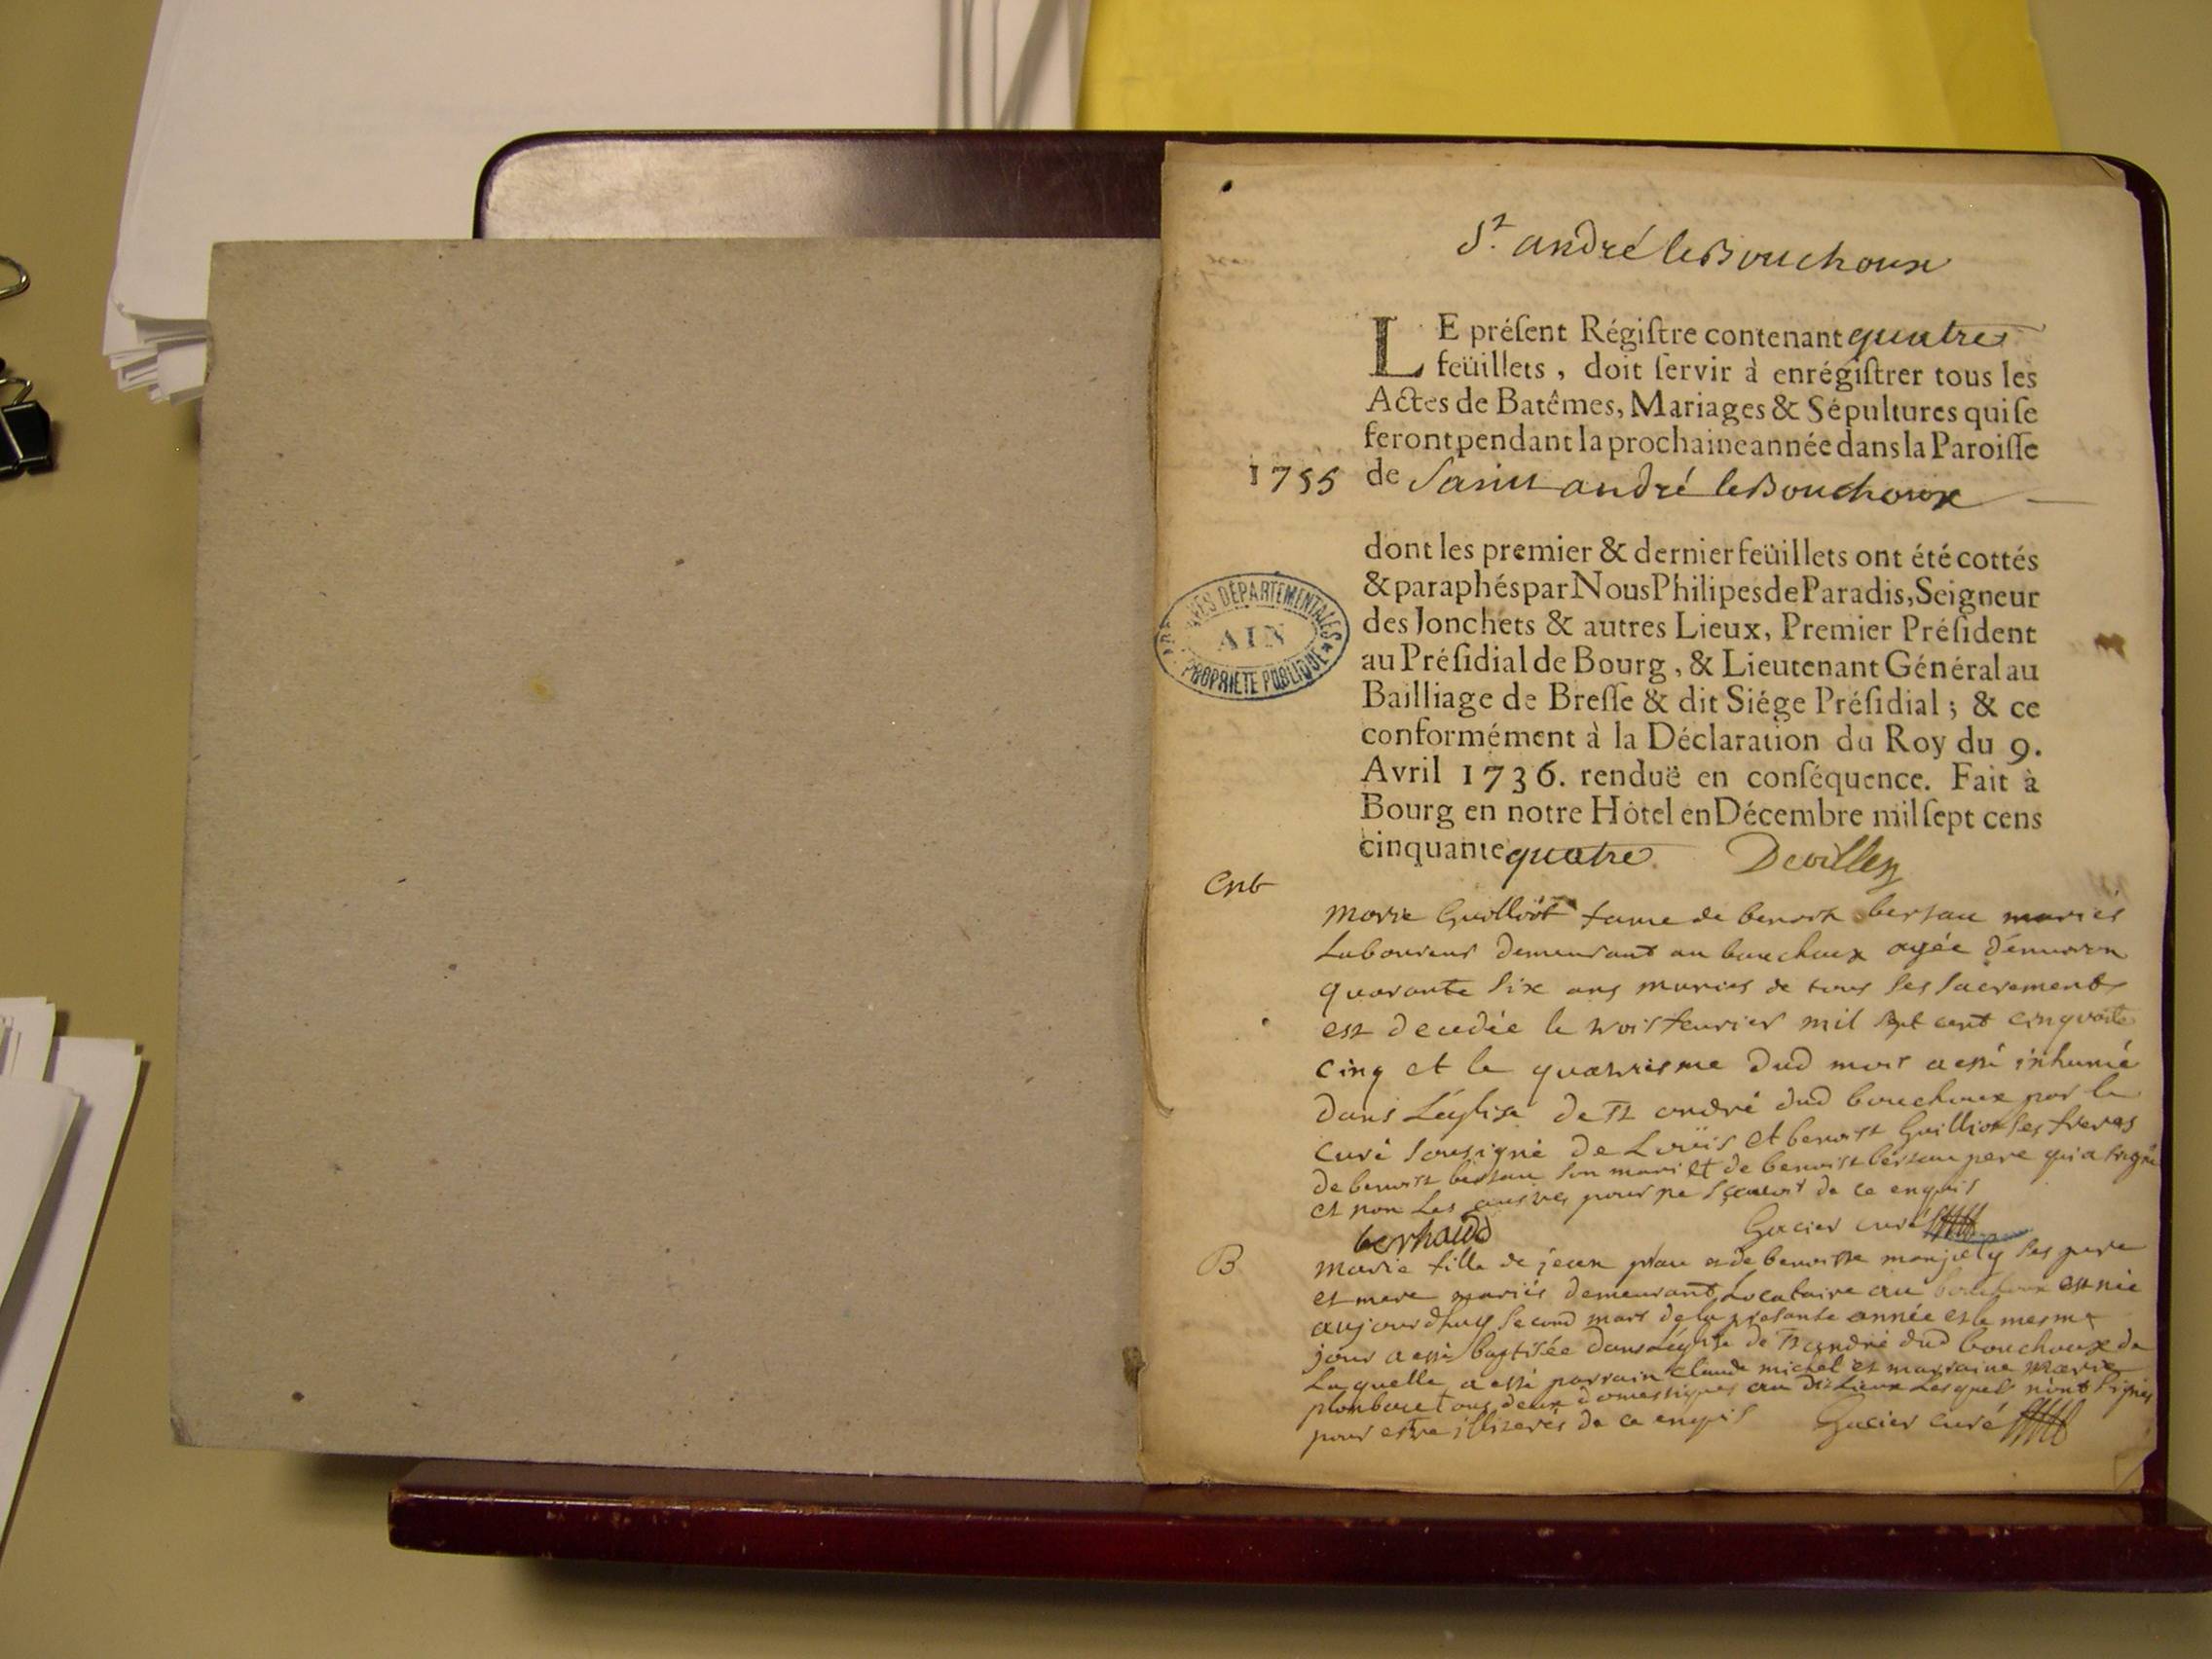 St. andré le Bouchoux
LE préſent Régiſtre contenant quatres
feüillets, doit ſervir à enrégiſtrer tous les
Actes de Batêmes, Mariages & Sépultures qui ſe
feront pendant la prochaine année dans la Paroiſſe
1755 de Saint andré le Bouchoux
dont les premier & dernier feüillets ont été cottés
& paraphés par Nous Philipes de Paradis, Seigneur
des Jonchets & autres Lieux, Premier Préſident
au Préſidial de Bourg, & Lieutenant Général au
Bailliage de Breſſe & dit Siége Préſidial; & ce
conformément à la Déclaration du Roy du 9.
Avril 1736. renduë en conſéquence. Fait à
Bourg en notre Hôtel en Décembre mil ſept cens
cinquante quatre. Devillez
ARCHIVES DÉPARTEMENTALES
AIN
PROPRIÉTÉ PUBLIQUE
marie Guilliot fame de benoit mariés
Laboureur demeurant au bouchoux agée d'environ
quarante six ans munies de tous ses sacrements
est decedée le trois feurier mil sept cent cinquate
cinq et le quatriesme dud mois a esté inhumé
dans Léglise de st andré dud bouchoux par le
curé sousigné de Loüis et benoist Guilliot ses freres
de benoist son mari et de benoist pere qui a signé
et non Les autres pour ne sçauoir de ce enquis
Gacier curé
B
marie fille de jean et de benoiste ses pere
et mere mariés demeurant Locataire au bouchoux est née
aujourdhuy second mars de la presante année et le mesme
jour a esté baptisée dans Léglise de st andré dud bouchoux de
Laquelle a esté parrain claude michel et marraine marie
tous deux domestiques au dit Lieux Lesquels n'ont signés
pour estre illiterés de ce enquis Gacier curé